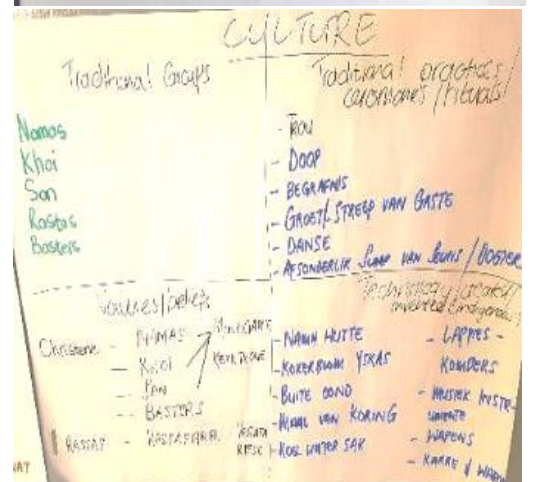 CULTURE
Traditional Groups
Namas
Khoi
San
Rastas
Basters
Traditional practices /
ceremonies / rituals
- TROU
- DOOP
- BEGRAFNIS
- GROET / VAN GASTE
- DANSE
- AFSONDERLIK SLAAP VAN SEUNS / DOGTER
Values/beliefs
Christene - NAMAS
- KHOI
- SAN
- BASTERS
RASTAS - RASTAFARI
Technology /
invented
- NAMA HUTTE
- KOKERBOOM YSKAS
- BUITE OOND
- MAAL VAN KORING
WATER SAK
- LAPPIES -
KOMBERS
- MUSIEK INSTR-
UMENTE
- WAPENS
- KARRE &